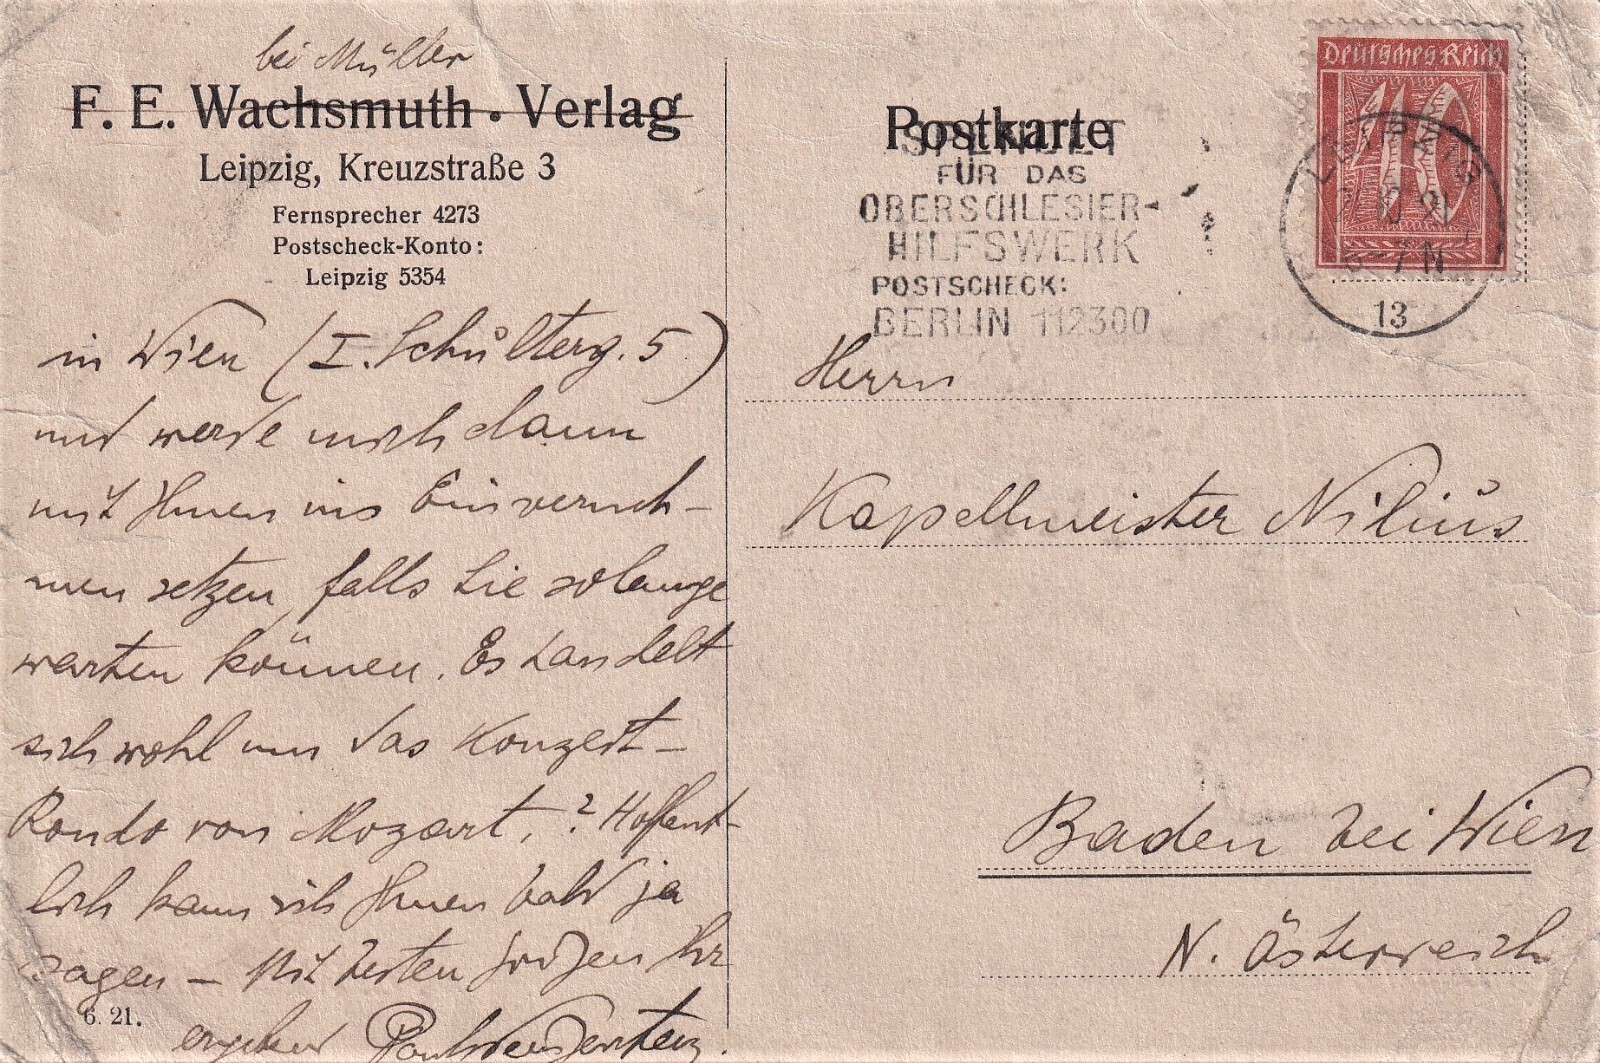 bei Müller
F. E. Wachsmuth • Verlag
Leipzig, Kreuzstraße 3
Fernsprecher 4273
Postscheck-Konto:
Leipzig 5354
in Wien (I. Schulterg. 5)
und werde mich dann
mit Ihnen ins Einverneh-
men setzen, falls Sie solange
warten können. Es handelt
sich wohl um das Konzert-
Rondo von Mozart, ? Hoffent-
lich kann ich Ihnen bald ja
sagen – Mit besten Grüßen Ihr
ergebener Paul
6. 21.
Postkarte
SPENDET
FÜR DAS
OBERSCHLESIER-
HILFSWERK
POSTSCHECK:
BERLIN 112300
Deutsches Reich
40
LEIPZIG
10 21
6-7 N
13
Herrn
Kapellmeister Nilius
Baden bei Wien
N. Österreich